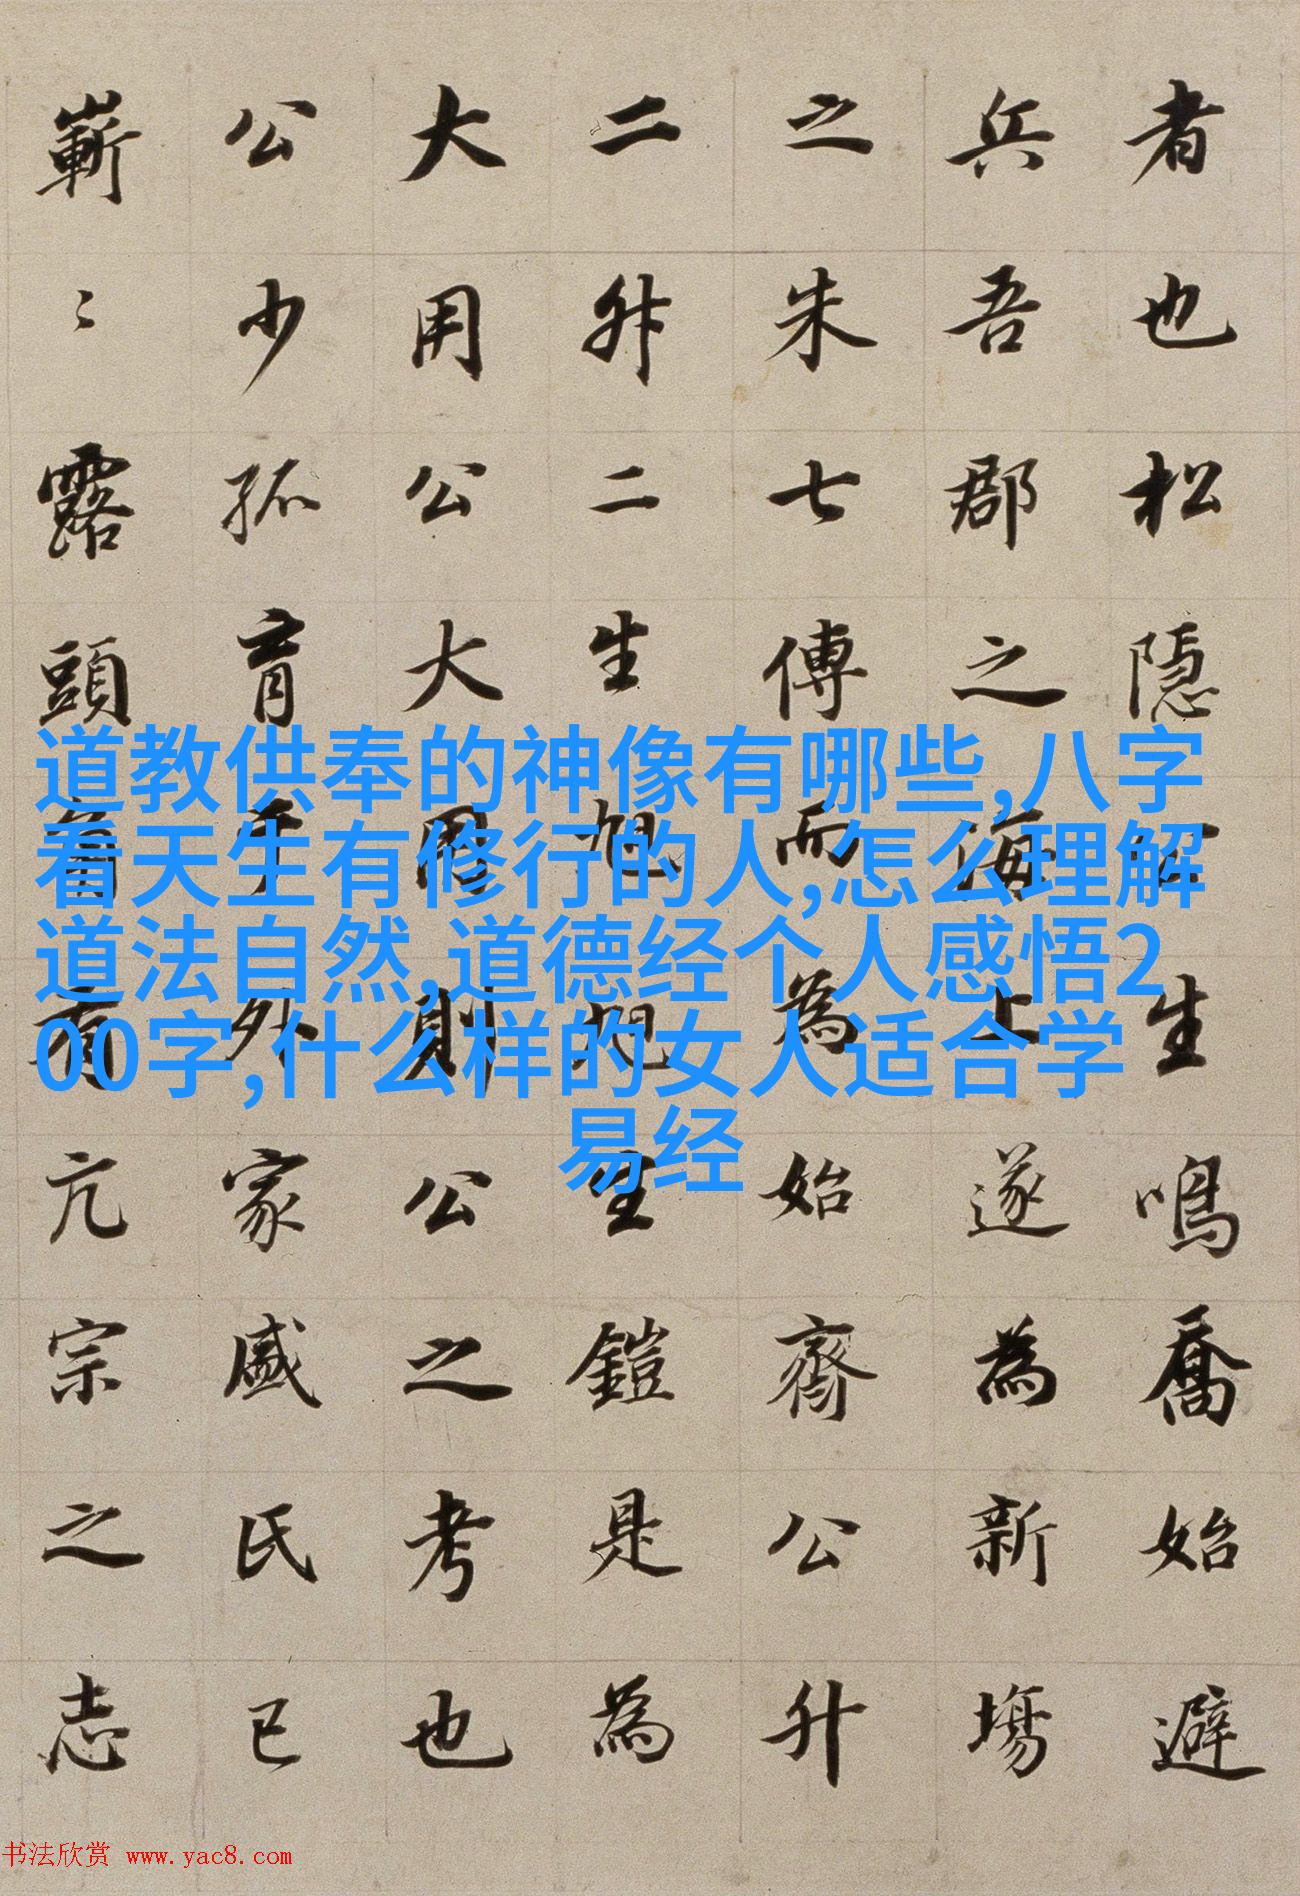 者也松隱生鳴喬始避
兵吾郡之海上遂為新塲
之朱七傅而為始齊公升
二升二生旭旭生鎧是為
大用公大用則公之考也
公少孤育于外家戚氏已
嶄〻露頭角有亢宗之志
道教供奉的神像有哪些,八字
看天生有修行的人,怎么理解
道法自然,道德经个人感悟2
00字,什么样的女人适合学
易经
书法欣赏 www.yac8.com